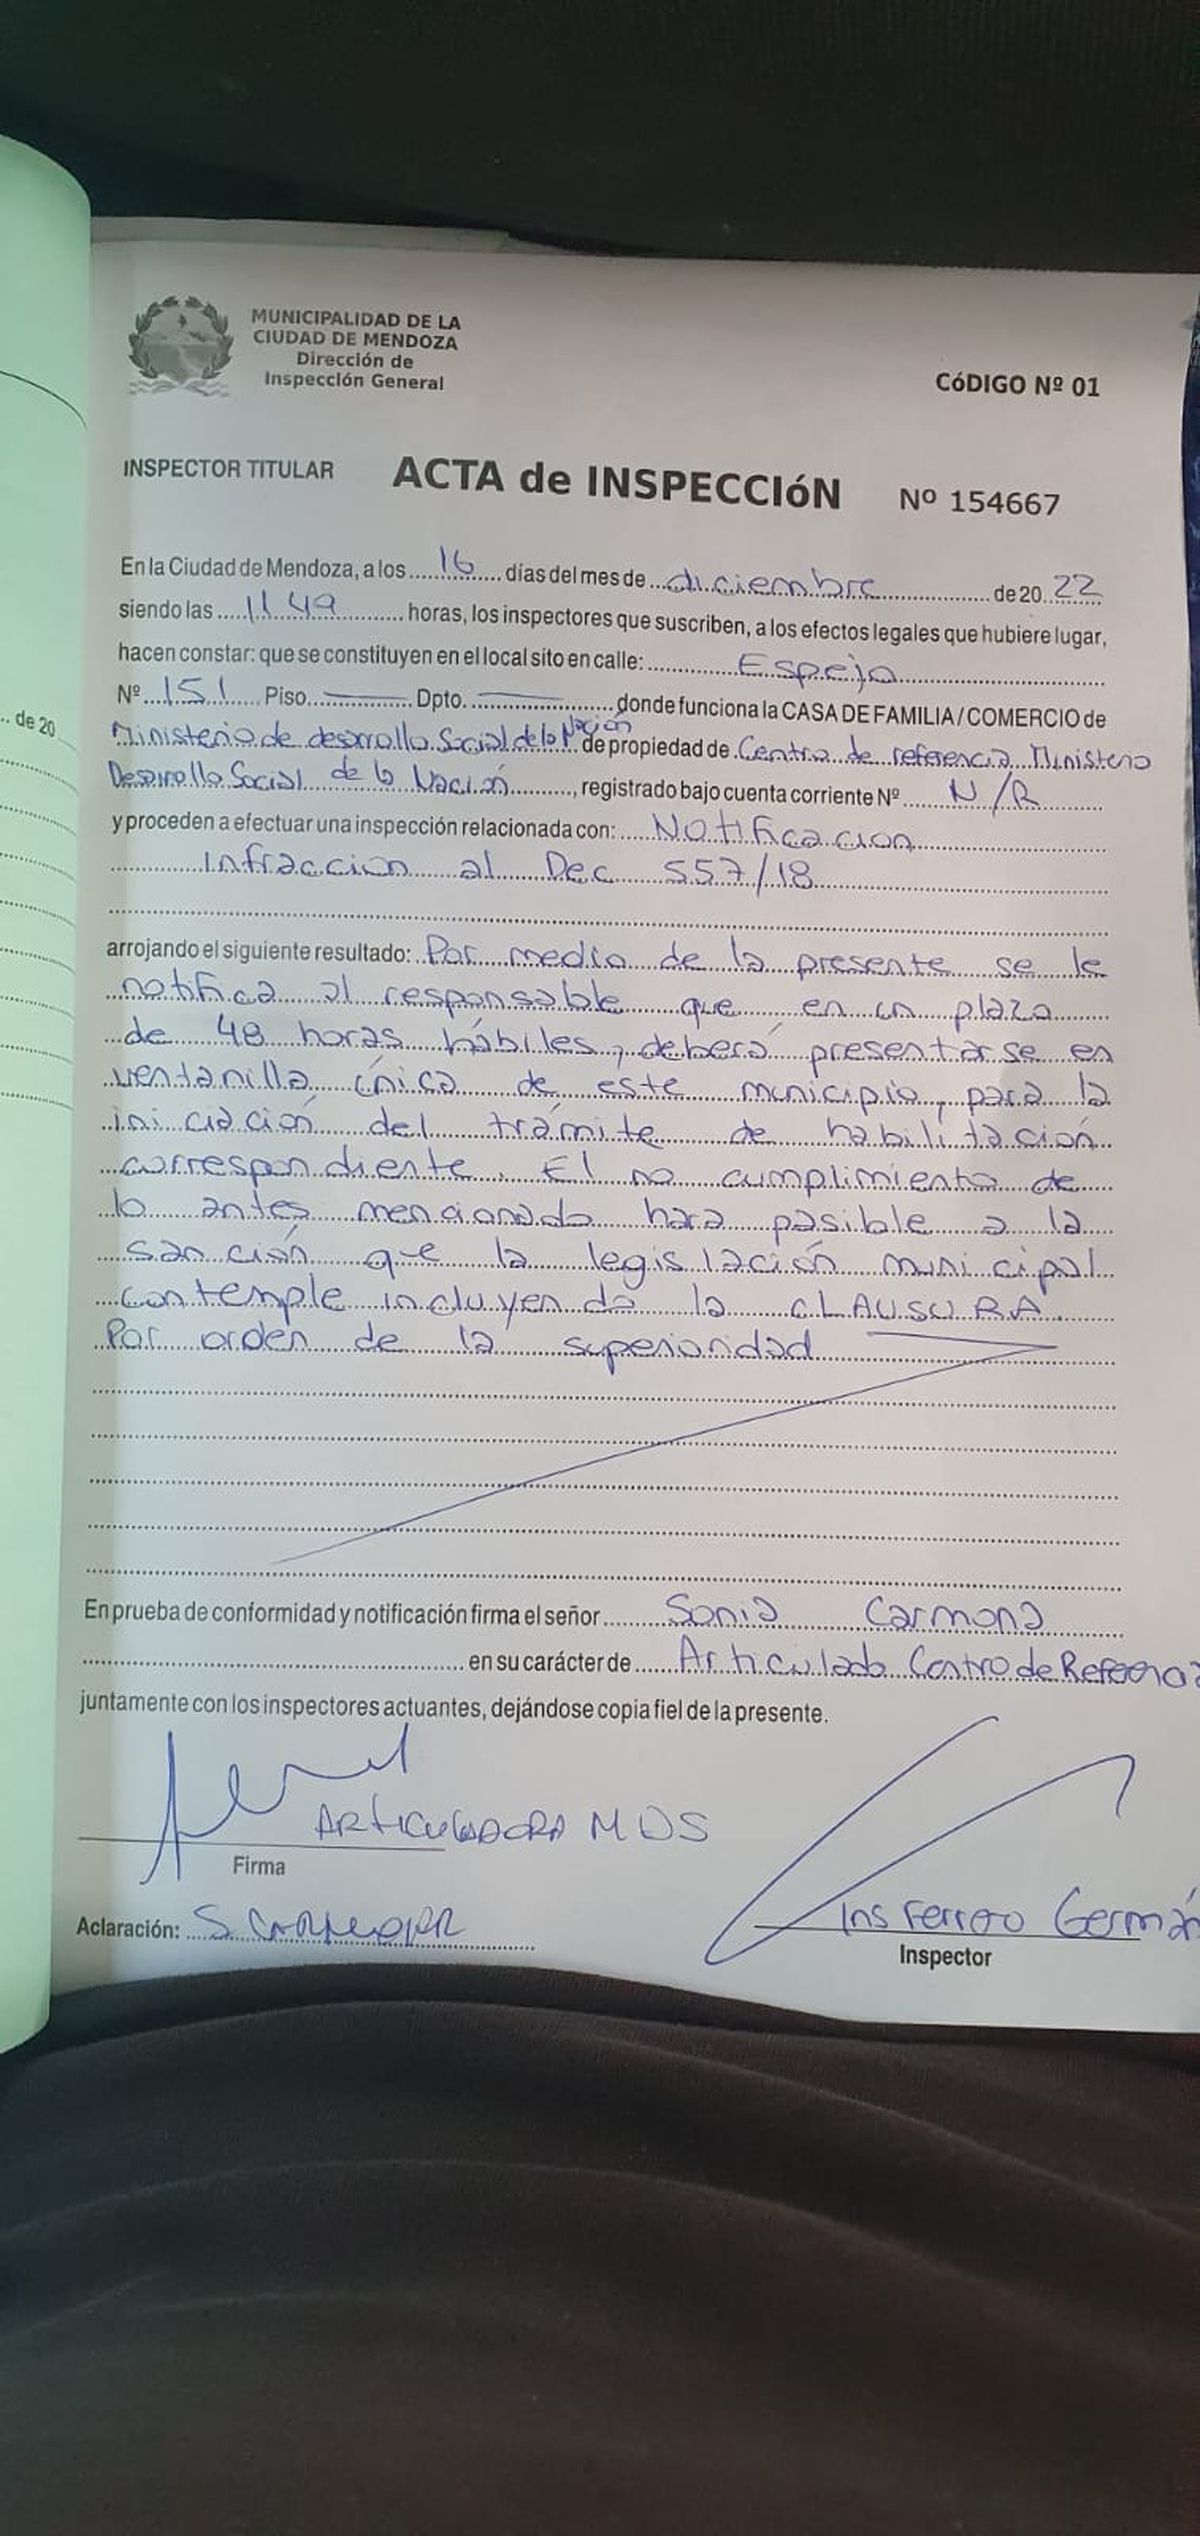 MUNICIPALIDAD DE LA
CIUDAD DE MENDOZA
Dirección de
Inspección General
CóDIGO Nº 01
INSPECTOR TITULAR ACTA de INSPECCIóN Nº 154667
En la Ciudad de Mendoza, a los 16 días del mes de diciembre de 20 22
siendo las 11.49 horas, los inspectores que suscriben, a los efectos legales que hubiere lugar,
hacen constar: que se constituyen en el local sito en calle: Espejo
Nº 151 Piso Dpto. donde funciona la CASA DE FAMILIA / COMERCIO de
Ministerio de desarrollo Social de la Nación de propiedad de Centro de referencia Ministerio
Desarrollo Social de la Nación, registrado bajo cuenta corriente Nº N/R
y proceden a efectuar una inspección relacionada con: Notificacion
Infraccion al Dec 557/18
arrojando el siguiente resultado: Por medio de la presente se le
notifica al responsable que en un plazo
de 48 horas hábiles, deberá presentarse en
ventanilla única de este municipio, para la
iniciación del trámite de habilitación
correspondiente. El no cumplimiento de
lo antes mencionado hará pasible a la
sanción que la legislación municipal
contemple incluyendo la CLAUSURA.
Por orden de la superioridad
En prueba de conformidad y notificación firma el señor Sonia Carmona
en su carácter de Articulado Centro de Referencia
juntamente con los inspectores actuantes, dejándose copia fiel de la presente.
ARTICULADORA MDS
Firma
Aclaración: S. CARMONA
Ins Ferrero Germán
Inspector
de 20